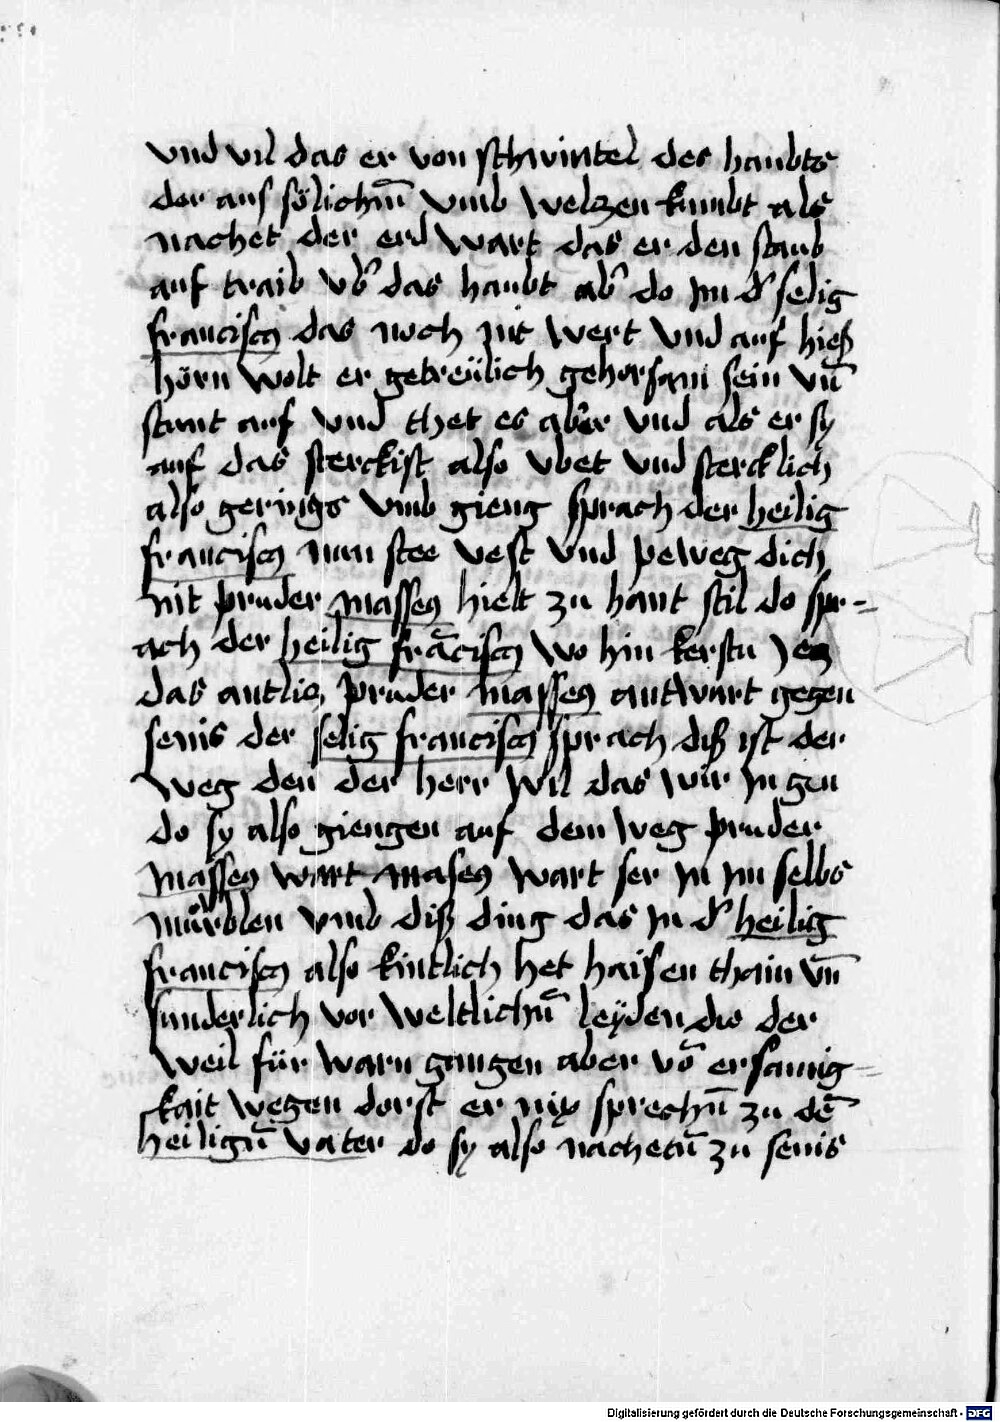 vnd vil das er von schwintel des haubts
der aus sölichn̄ vmb welzen kumbt als
nachet der erd wart das er den staub
auf traib vb̾ das haubt ab̾ do im d̾ selig
franciscꝯ das noch nit wert vnd auf hieß
hörn wolt er getreülich gehorsam sein vn̄
stunt auf vnd thet es aber vnd als er sy
auf das sterckist also vbet vnd stercklich
also gerings vmb gieng sprach der heilig
franciscꝯ nun stee vest vnd peweg dich
nit pruder masseꝯ hielt zu hant stil do spr=
ach der heilig frāciscꝯ wo hin kerstu
das antlic pruder masseꝯ antwart gegen
senis der selig franciscꝯ sprach diß ist der
weg den der herr wil das wir in gen
do sy also giengen auf dem weg pruder
masseꝯ wart maseꝯ wart ser in im selbs
murblen vmb diß ding das in d̾ heilig
franciscꝯ also kintlich het haisen thain vn̄
sunderlich vor weltlichn̄ leÿden die der
weil für warn gangen aber vō ersamig=
kait wegen dorst er nix sprechn̄ zu dē
heilign̄ vater do sy also nachetn̄ zu senis
Digitalisierung gefördert durch die Deutsche Forschungsgemeinschaft - DFG